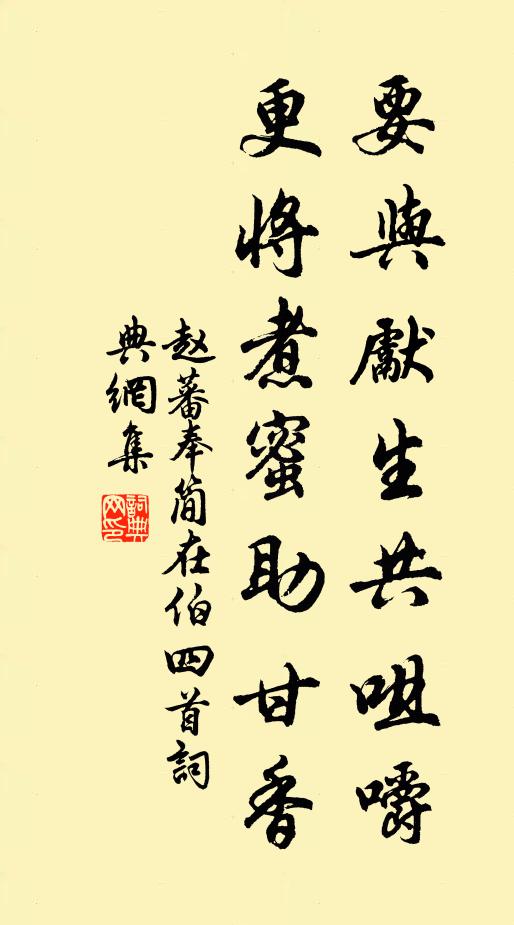 要與獻生共咀嚼
更將煮蜜助甘香
赵蕃奉简在伯四首詞
典網集
詞典网印